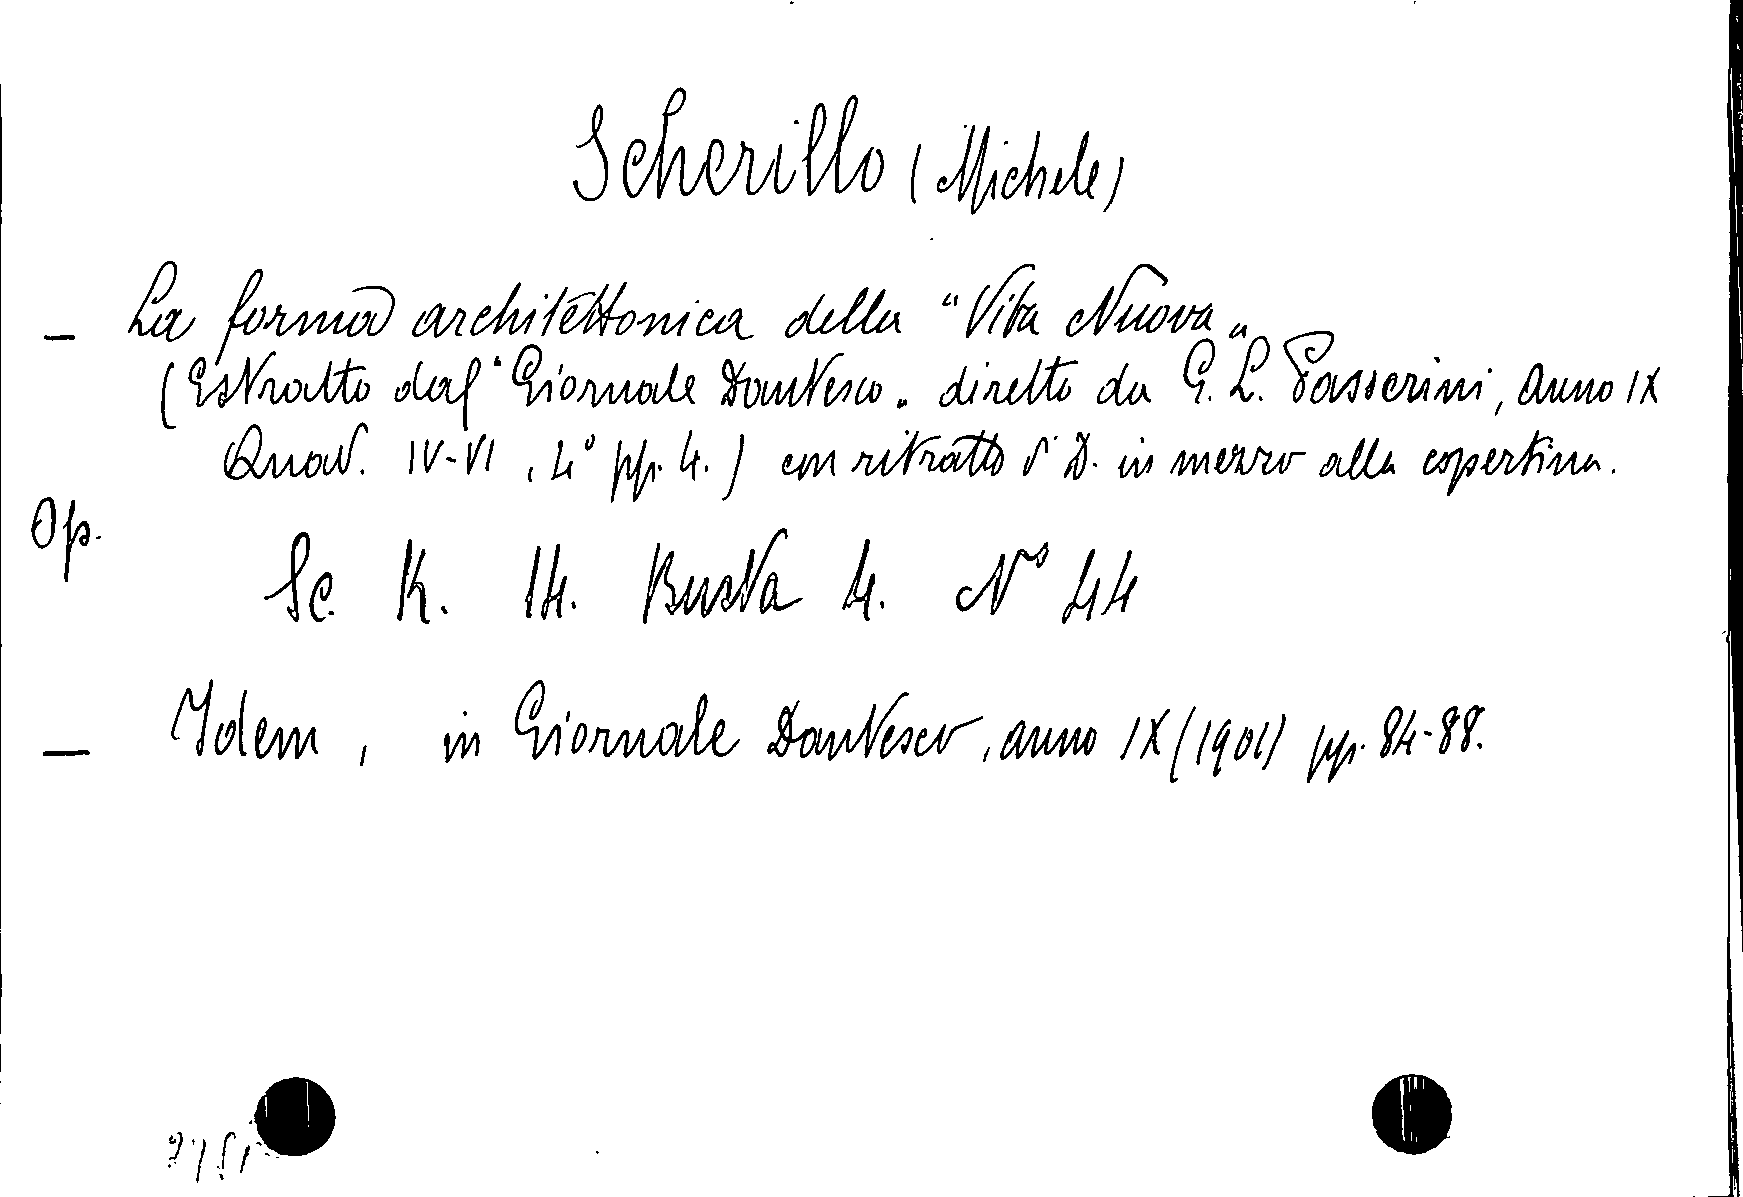 Scherillo (Michele)
— La forma architettonica della "Vita Nuova"
(Estratto dal "Giornale Dantesco" diretto da G. L. Passerini, anno IX
Quad. IV-VI, 4° pp. 4.) con ritratto d' D. in mezzo alla copertina.
Op.
Sc. K. 14. Busta 4. N° 44
— Idem, in Giornale Dantesco, anno IX (1901) pp. 84-88.